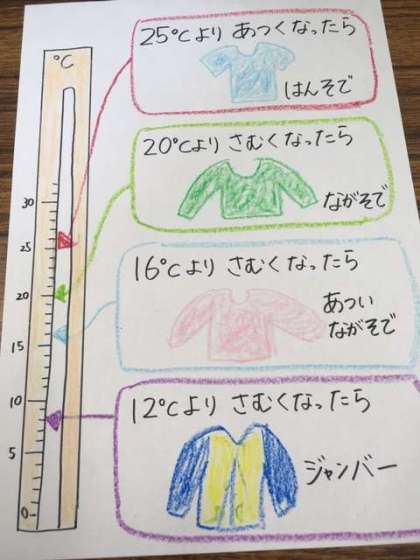 °C
25°Cより あつくなったら
はんそで
20°Cより さむくなったら
ながそで
16°Cより さむくなったら
あつい
ながそで
12°Cより さむくなったら
ジャンバー
30
25
20
15
10
5
0